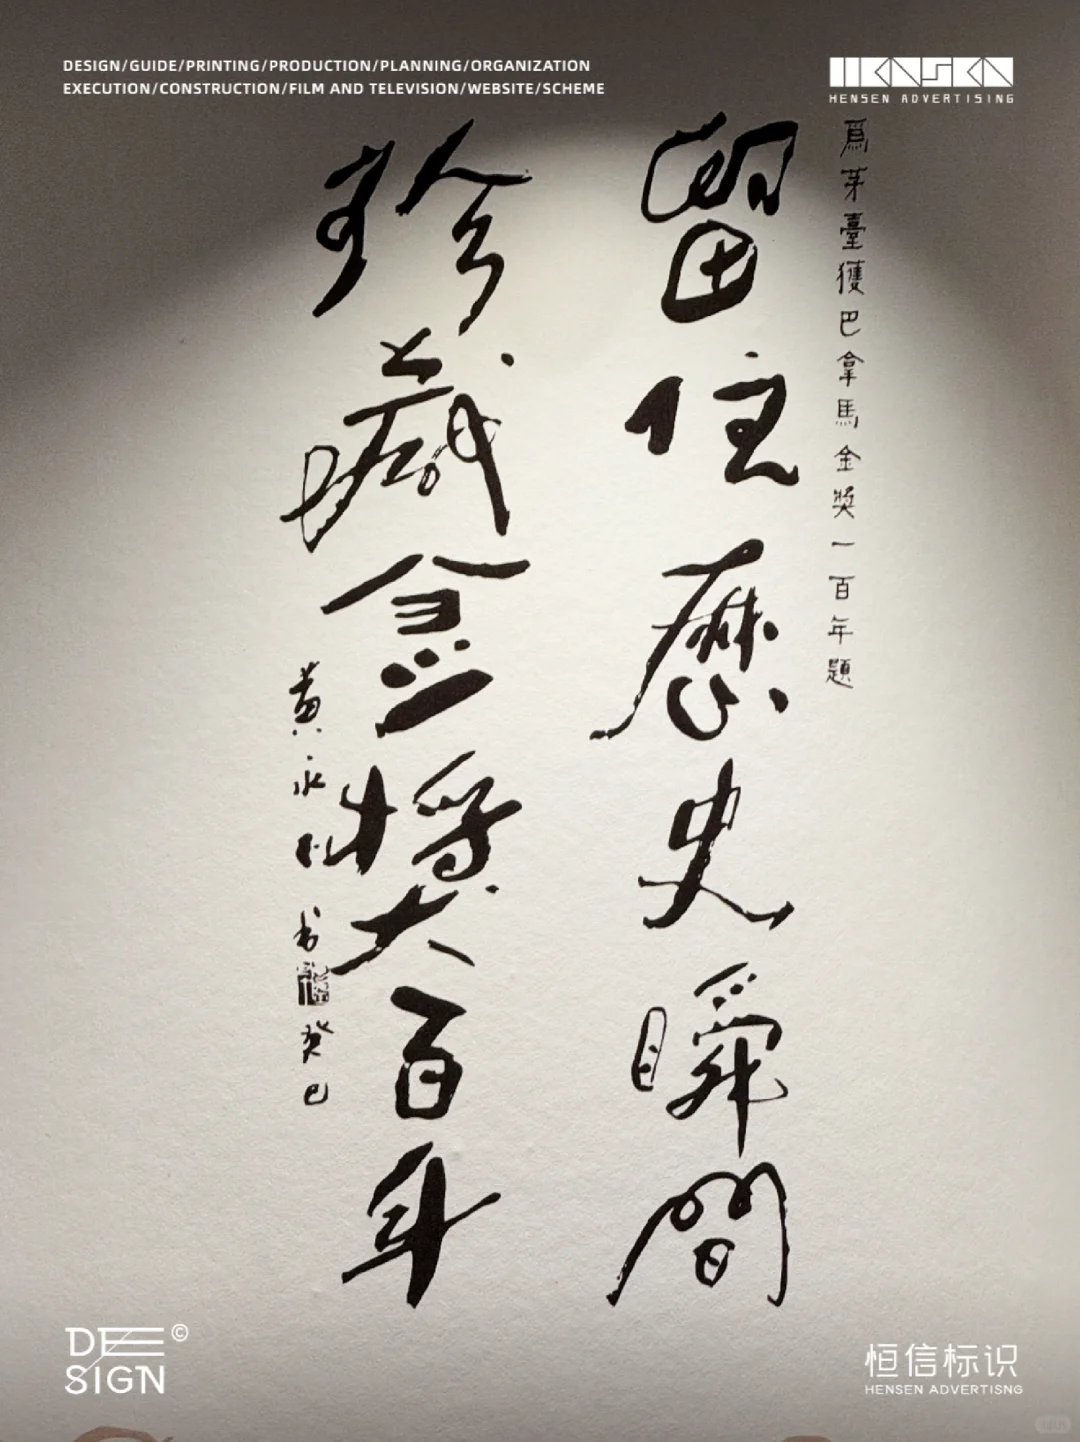 DESIGN/GUIDE/PRINTING/PRODUCTION/PLANNING/ORGANIZATION
EXECUTION/CONSTRUCTION/FILM AND TELEVISION/WEBSITE/SCHEME
HENSEN
HENSEN ADVERTISING
爲茅臺獲巴拿馬金獎一百年題
留住歷史瞬間
珍藏金獎百年
黄永玉书
癸巳
DE
SIGN
©
恒信标识
HENSEN ADVERTISNG